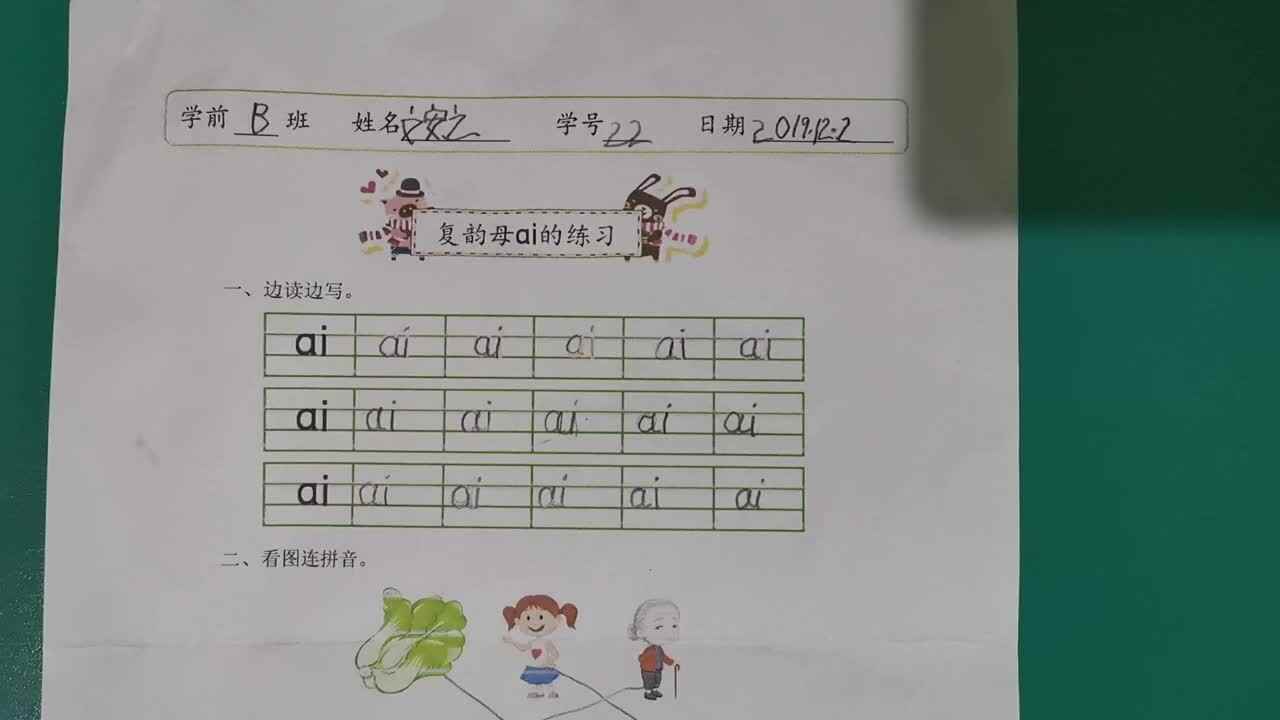 学前 B 班 姓名 安之 学号 22 日期 2019.12.2
复韵母ai的练习
一、边读边写。
ai ai ai ai ai ai
ai ai ai ai ai ai
ai ai ai ai ai ai
二、看图连拼音。